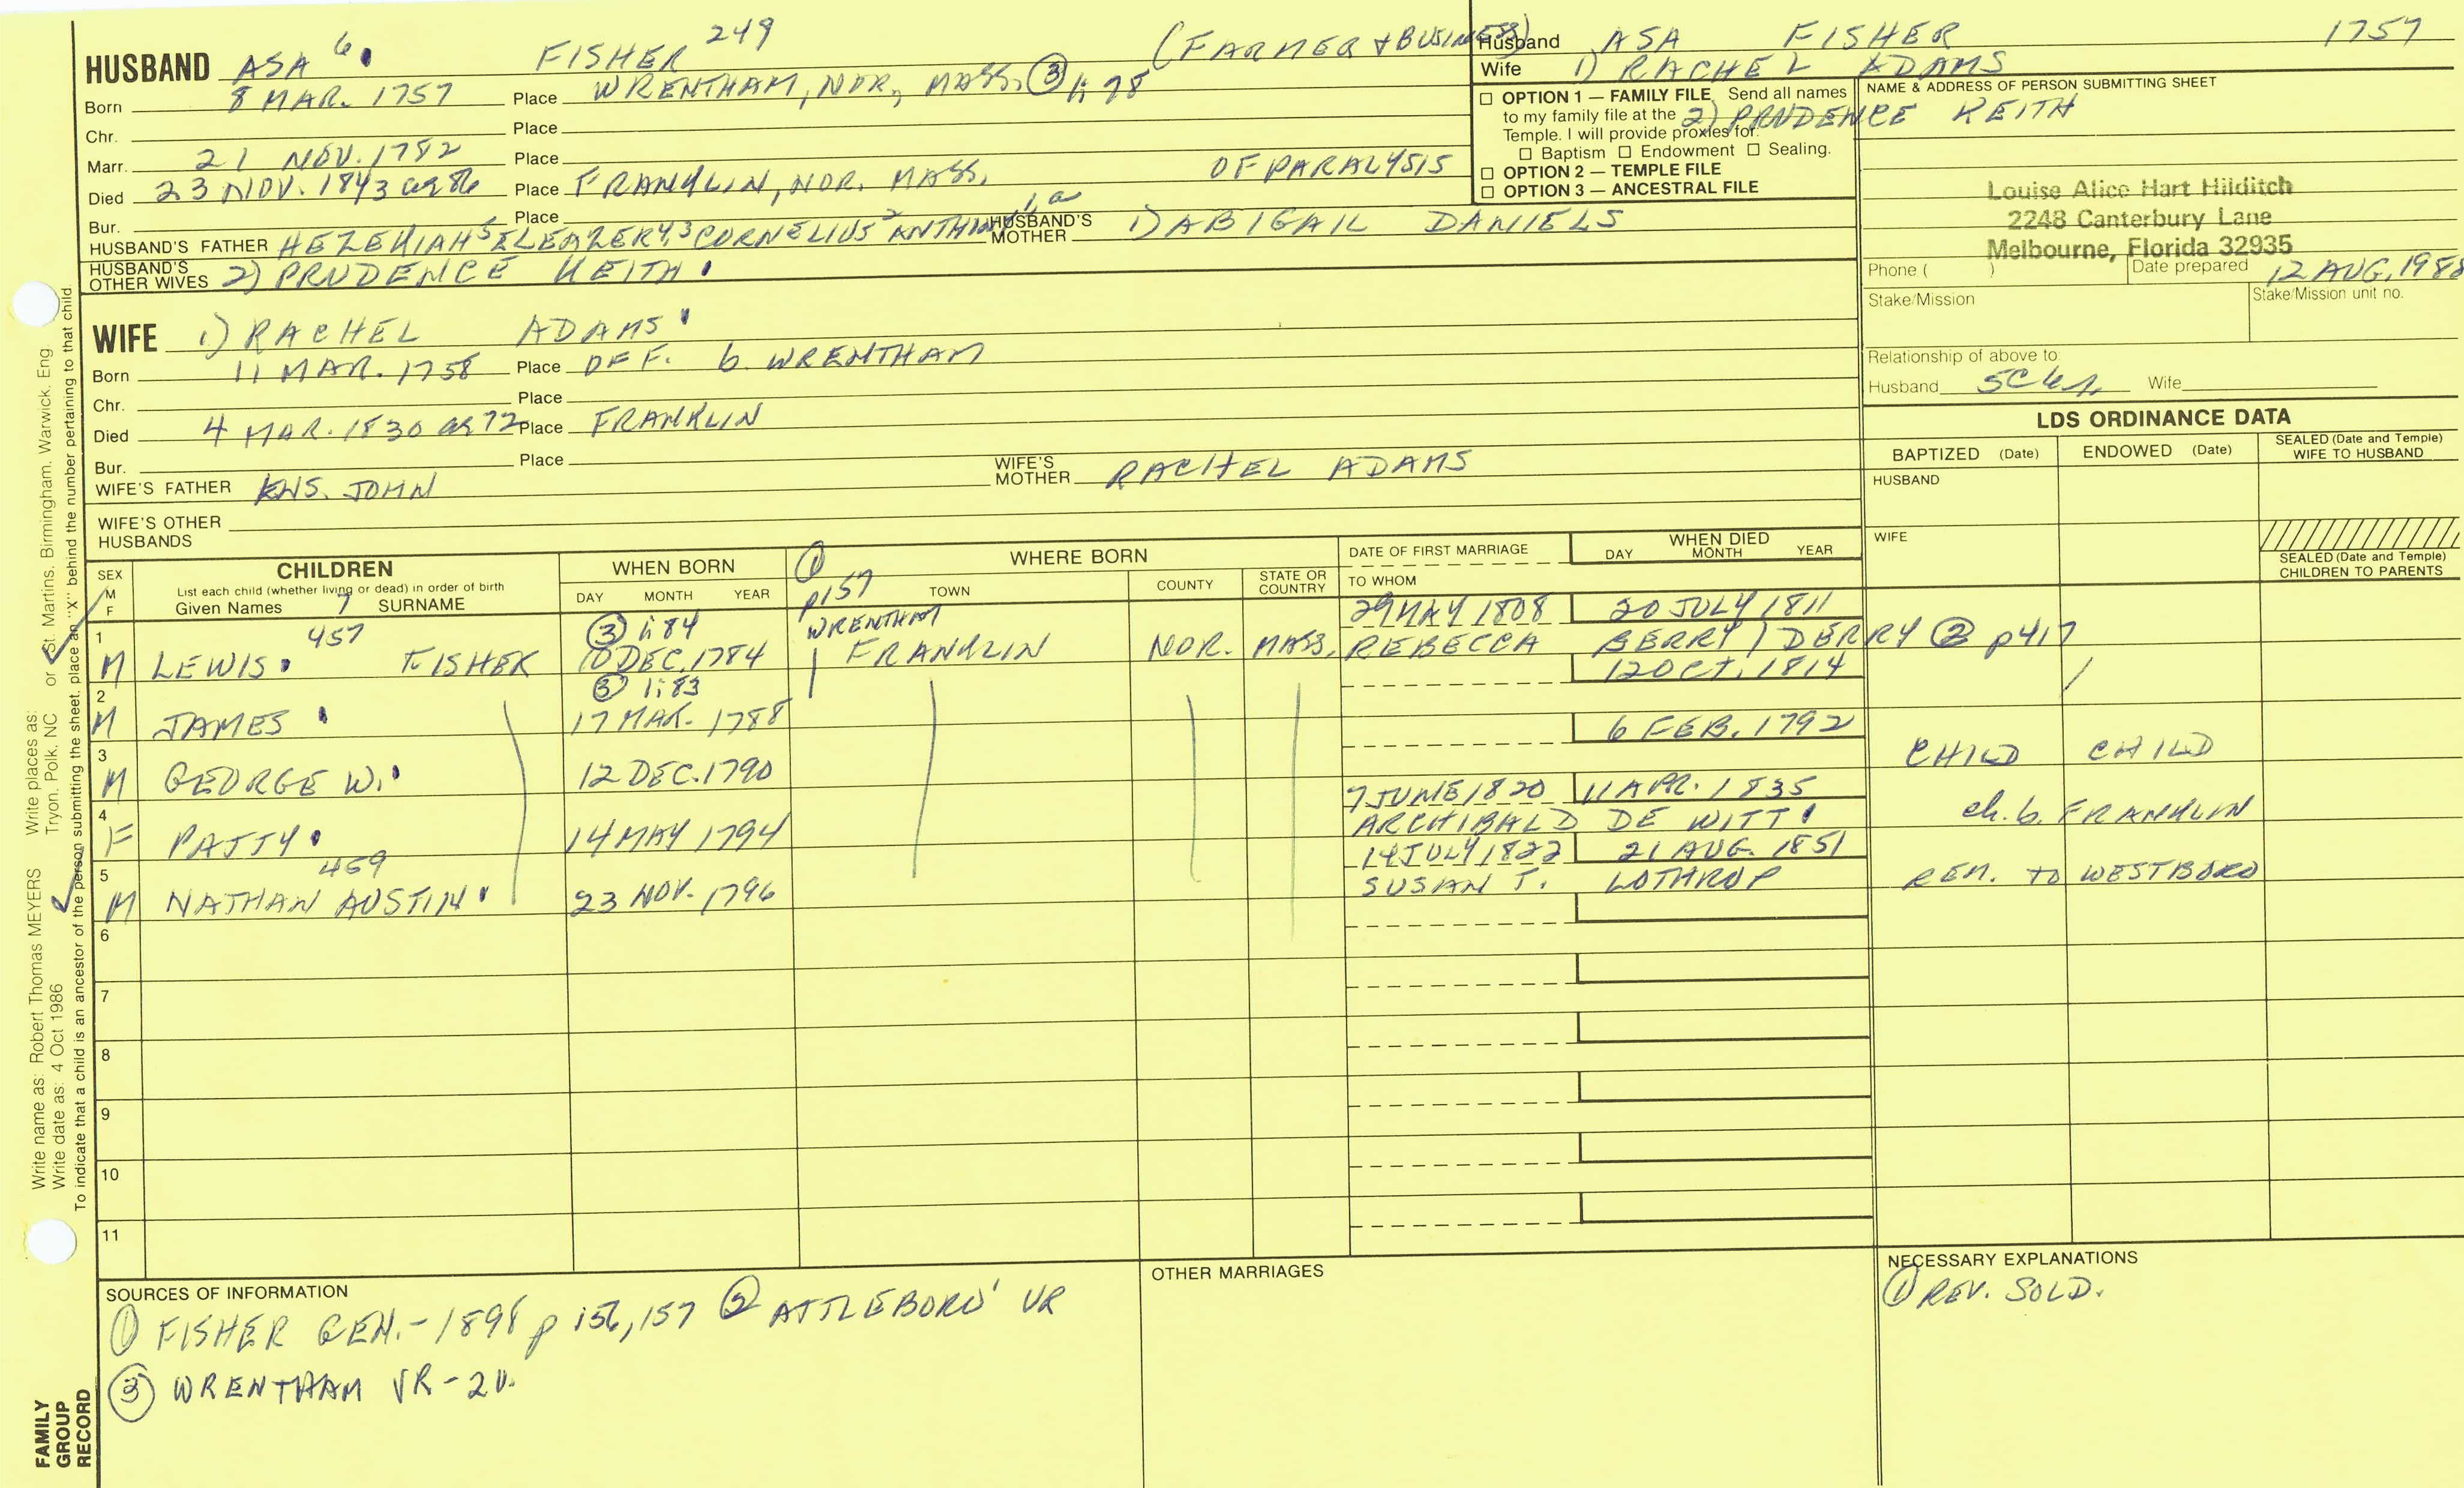 HUSBAND ASA 6 FISHER 249 (FARMER & BUSINESS)
Born 8 MAR. 1757 Place WRENTHAM, NOR, MASS. ③ 1:78
Chr. Place
Marr. 21 NOV. 1782 Place
Died 23 NOV. 1843 ag 86 Place FRANKLIN, NOR. MASS. OF PARALYSIS
Bur. Place
HUSBAND'S FATHER HEZEKIAH 5 ELEAZER 4,3 CORNELIUS 2 ANTHONY 1,a HUSBAND'S MOTHER 1) ABIGAIL DANIELS
HUSBAND'S OTHER WIVES 2) PRUDENCE KEITH
WIFE 1) RACHEL ADAMS
Born 11 MAR. 1758 Place DEF. b. WRENTHAM
Chr. Place
Died 4 MAR. 1830 ag 72 Place FRANKLIN
Bur. Place
WIFE'S FATHER ENS. JOHN WIFE'S MOTHER RACHEL ADAMS
WIFE'S OTHER HUSBANDS
Husband ASA FISHER 1757
Wife 1) RACHEL ADAMS
2) PRUDENCE KEITH
OPTION 1 — FAMILY FILE Send all names
to my family file at the
Temple. I will provide proxies for:
Baptism Endowment Sealing.
OPTION 2 — TEMPLE FILE
OPTION 3 — ANCESTRAL FILE
NAME & ADDRESS OF PERSON SUBMITTING SHEET
Louise Alice Hart Hilditch
2248 Canterbury Lane
Melbourne, Florida 32935
Phone ( ) Date prepared 12 AUG, 1988
Stake/Mission Stake/Mission unit no.
Relationship of above to:
Husband 5C4r Wife
LDS ORDINANCE DATA
BAPTIZED (Date) ENDOWED (Date) SEALED (Date and Temple) WIFE TO HUSBAND
HUSBAND
WIFE
SEALED (Date and Temple) CHILDREN TO PARENTS
SEX M F
CHILDREN
List each child (whether living or dead) in order of birth
Given Names 7 SURNAME
WHEN BORN
DAY MONTH YEAR
① p157
WHERE BORN
TOWN COUNTY STATE OR COUNTRY
DATE OF FIRST MARRIAGE
TO WHOM
WHEN DIED
DAY MONTH YEAR
1 457 ③ 1:84 WRENTHAM 29 MAY 1808 20 JULY 1811
M LEWIS FISHER 10 DEC. 1784 FRANKLIN NOR. MASS. REBECCA BERRY / DERRY ② p417
2 ③ 1:83 12 OCT. 1814
M JAMES 17 MAR. 1788
3 6 FEB. 1792
M GEORGE W. 12 DEC. 1790 CHILD CHILD
4 7 JUNE 1820 11 APR. 1835
F PATTY 14 MAY 1794 ARCHIBALD DE WITT ch. b. FRANKLIN
5 459 14 JULY 1822 21 AUG. 1851
M NATHAN AUSTIN 23 NOV. 1796 SUSAN T. LOTHROP REM. TO WESTBORO
6
7
8
9
10
11
SOURCES OF INFORMATION
① FISHER GEN.-1898 p 156, 157 ② ATTLEBORO' VR
③ WRENTHAM VR-2V.
OTHER MARRIAGES
NECESSARY EXPLANATIONS
① REV. SOLD.
Write name as: Robert Thomas MEYERS Write places as:
Write date as: 4 Oct 1986 Tryon. Polk. NC or St. Martins. Birmingham. Warwick. Eng
To indicate that a child is an ancestor of the person submitting the sheet, place an "X" behind the number pertaining to that child
FAMILY
GROUP
RECORD